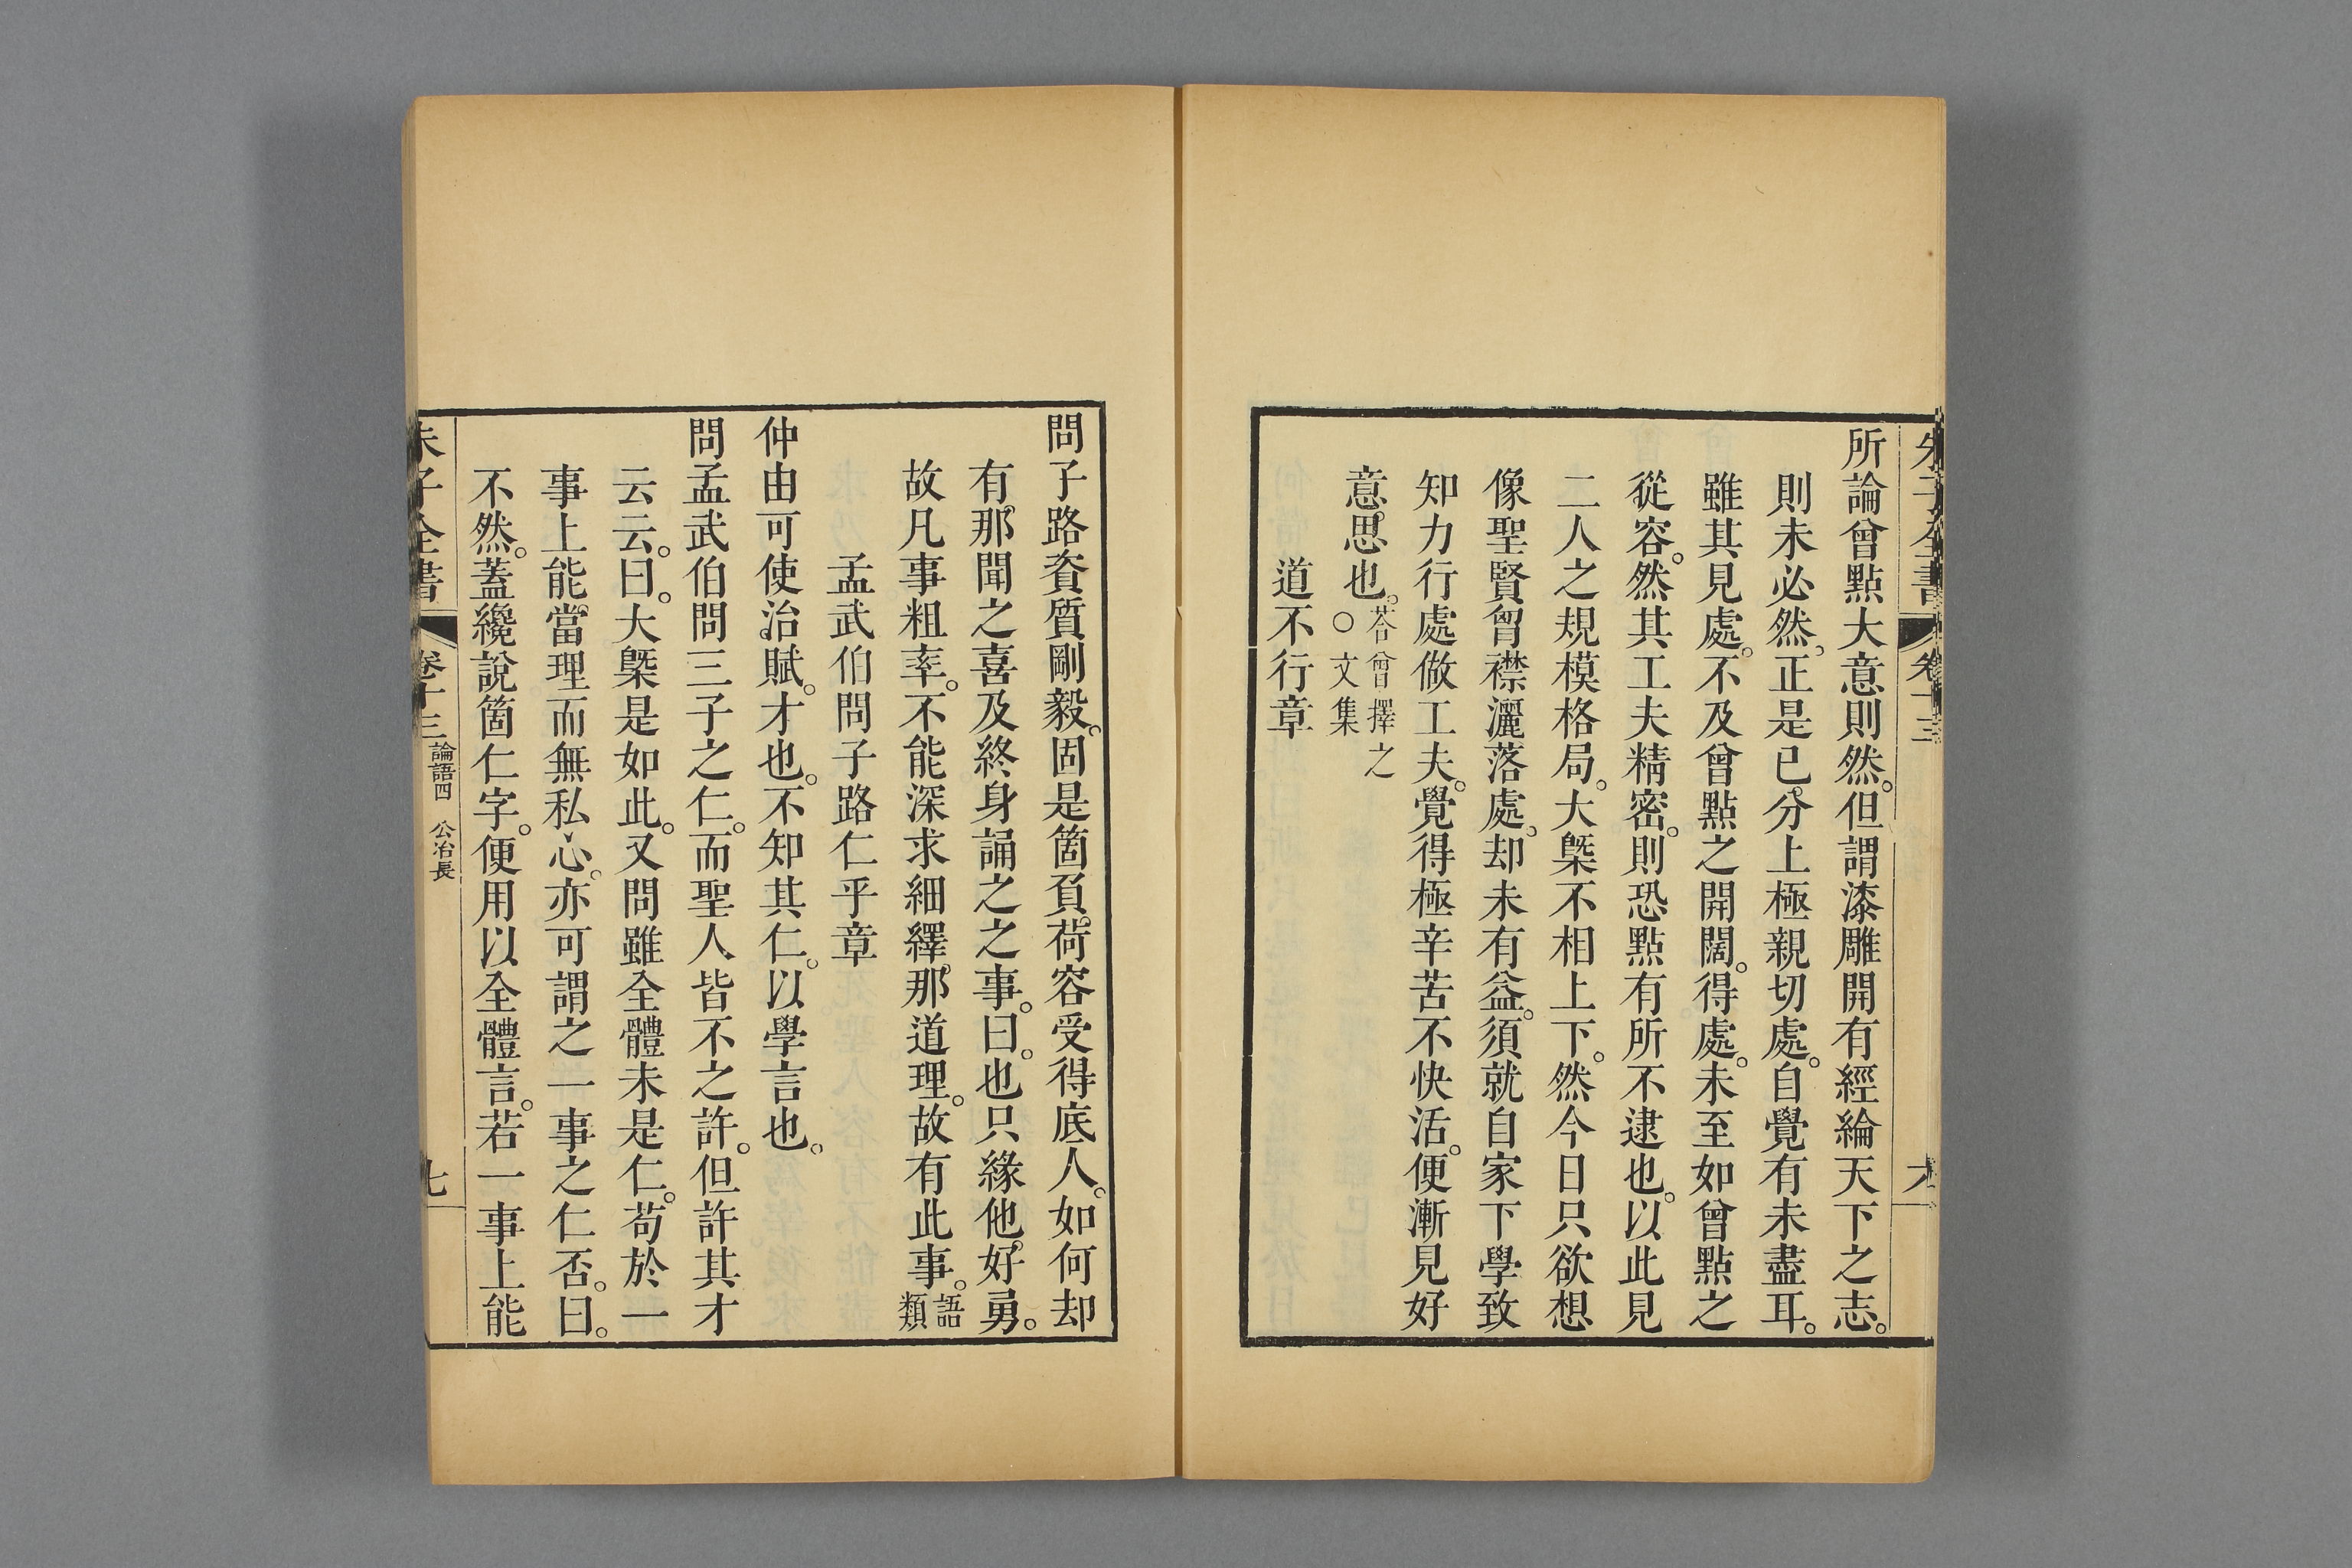 朱子全書 卷十三
所論曾點大意則然。但謂漆雕開有經綸天下之志。
則未必然。正是已分上極親切處。自覺有未盡耳。
雖其見處。不及曾點之開闊。得處。未至如曾點之
從容。然其工夫精密。則恐點有所不逮也。以此見
二人之規模格局。大槩不相上下。然今日只欲想
像聖賢胷襟灑落處。却未有益。須就自家下學致
知力行處做工夫。覺得極辛苦不快活。便漸見好
意思也。答曾擇之
○文集
道不行章
問子路資質剛毅。固是箇負荷容受得底人。如何却
有那聞之喜及終身誦之之事。曰。也只緣他好勇。
故凡事粗率。不能深求細繹那道理。故有此事。語
類
孟武伯問子路仁乎章
仲由可使治賦。才也。不知其仁。以學言也。
問孟武伯問三子之仁。而聖人皆不之許。但許其才
云云。曰。大槩是如此。又問雖全體未是仁。苟於一
事上能當理而無私心。亦可謂之一事之仁否。曰。
不然。蓋纔說箇仁字。便用以全體言。若一事上能
朱子全書 卷十三 論語四 公冶長 七